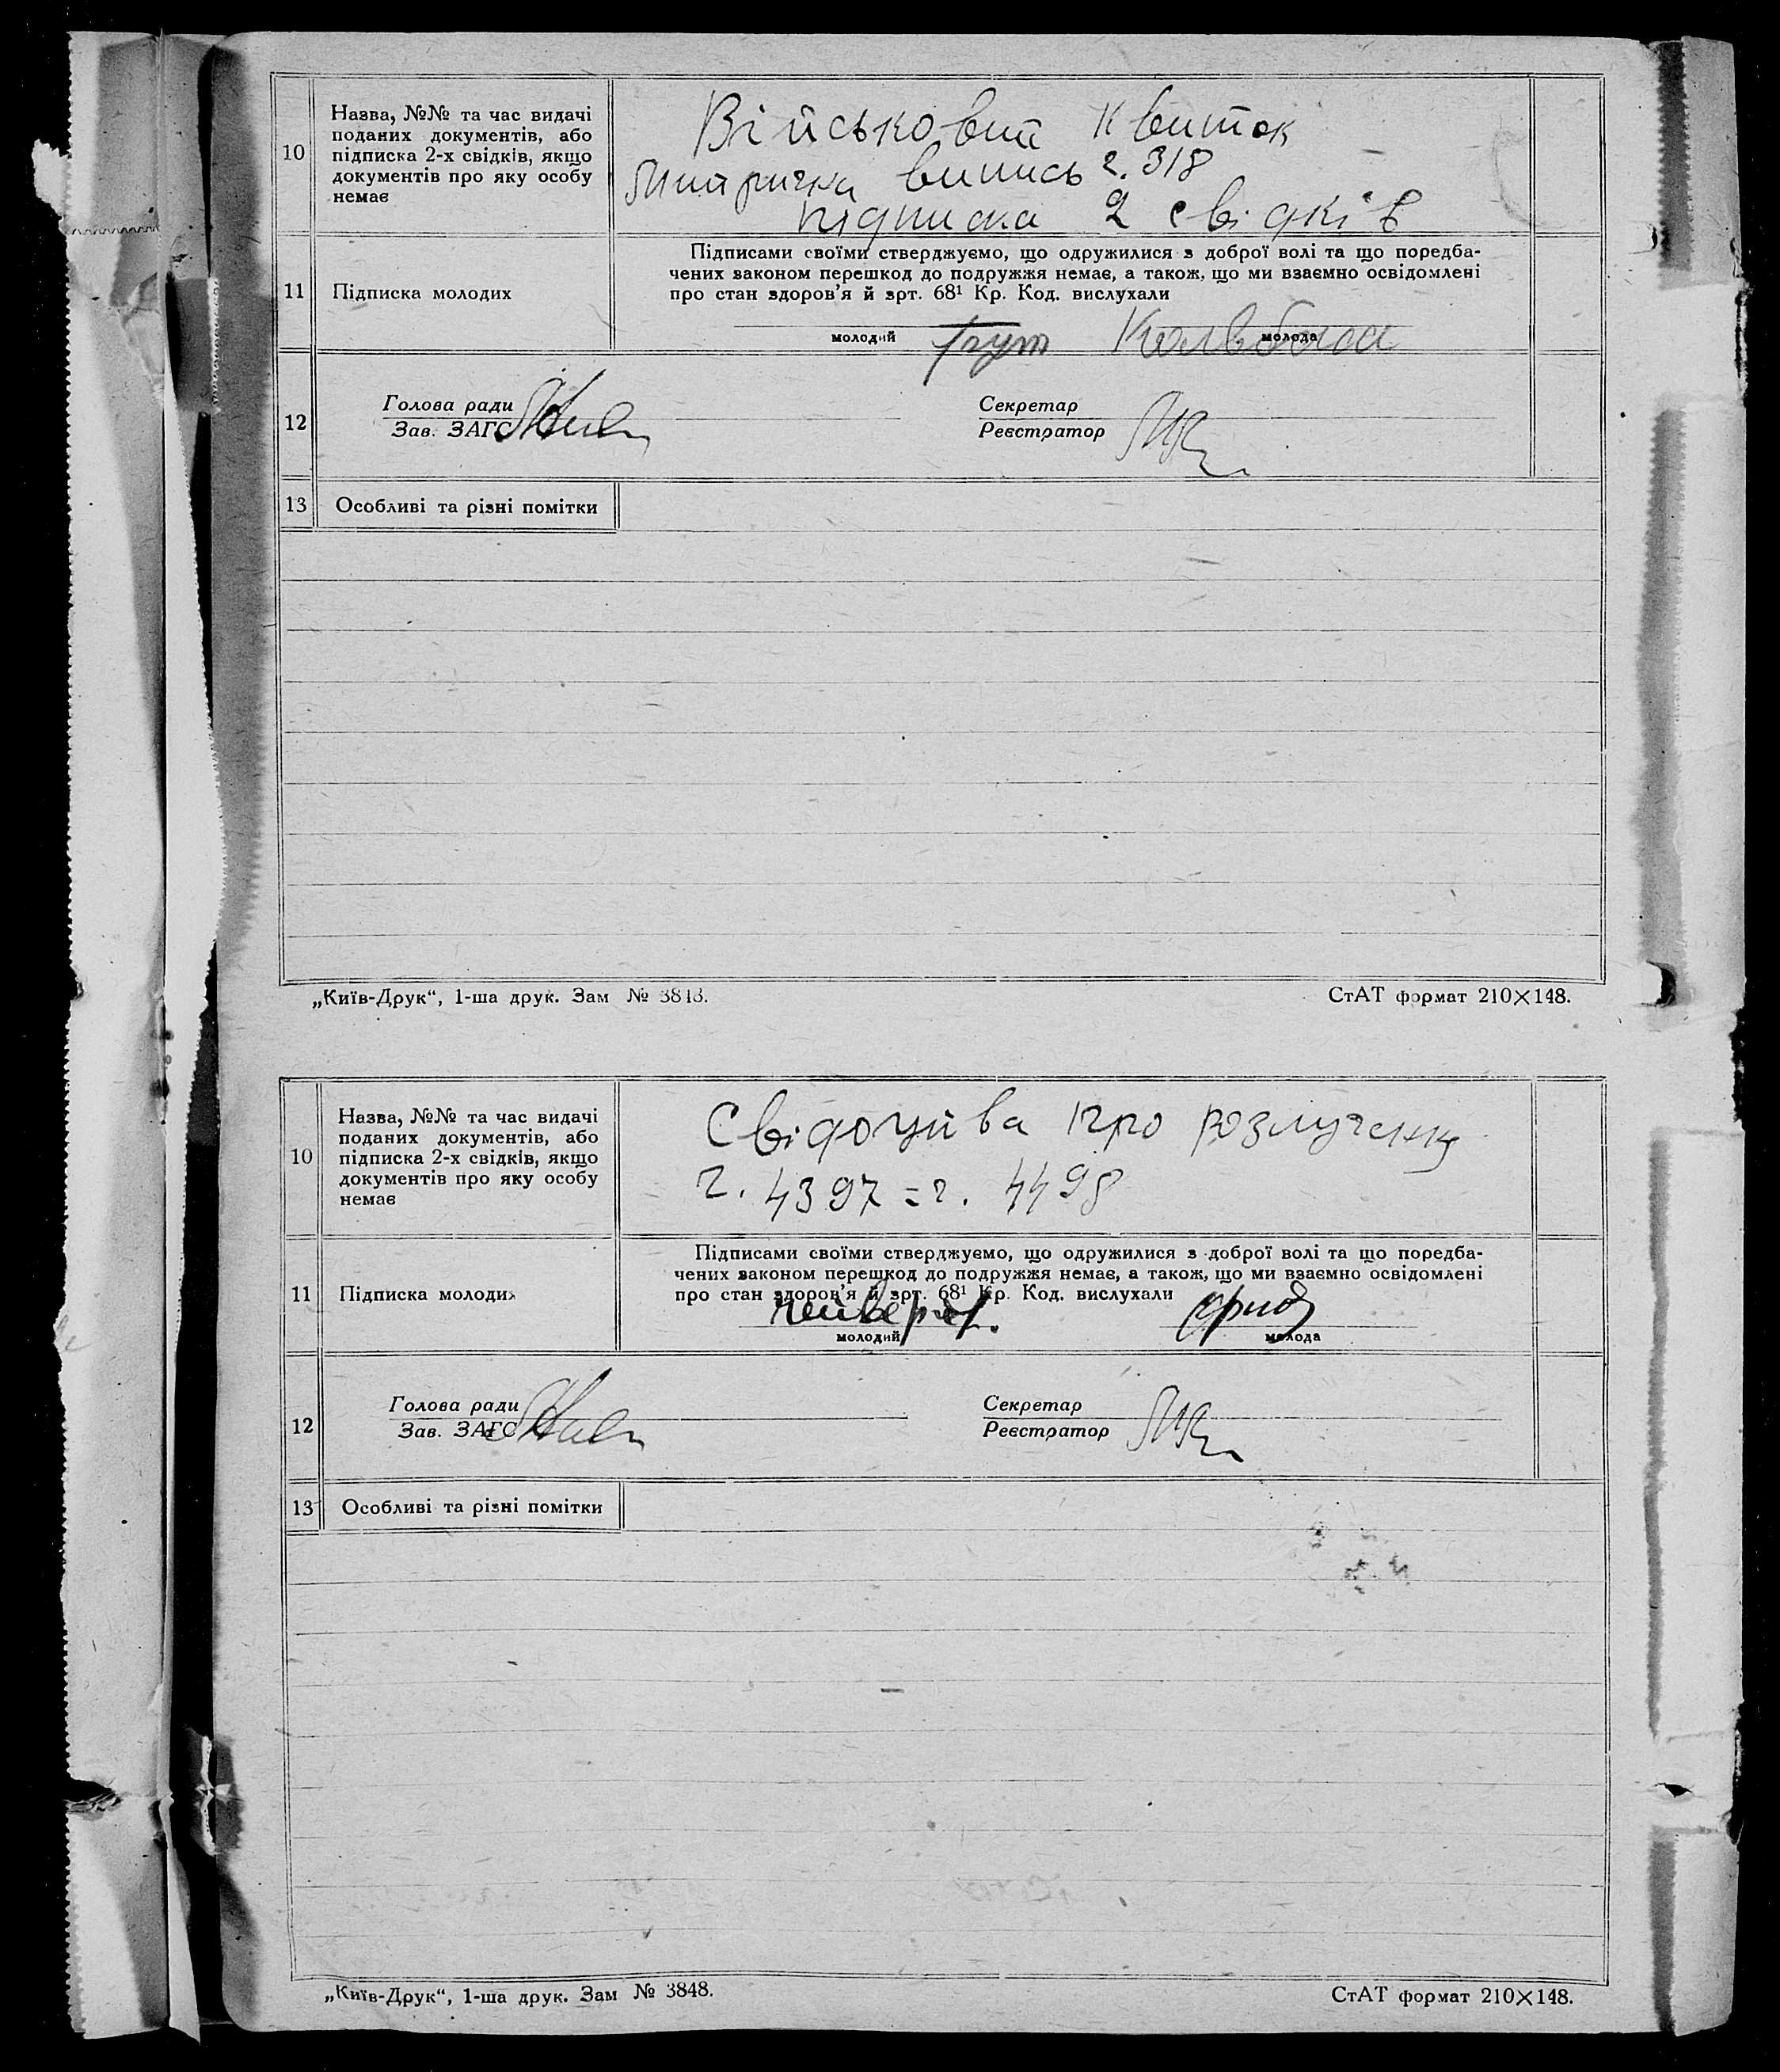 10
Назва, №№ та час видачі
поданих документів, або
підписка 2-х свідків, якщо
документів про яку особу
немає
Військовий квиток
Митрична випись г. 318
підписка 2 свідків
11
Підписка молодих
Підписами своїми стверджуємо, що одружилися з доброї волі та що поредба-
чених законом перешкод до подружжя немає, а також, що ми взаємно освідомлені
про стан здоров'я й зрт. 68¹ Кр. Код. вислухали
молодий
молода
12
Голова ради
Зав. ЗАГС
Секретар
Реєстратор
13
Особливі та різні помітки
„Київ-Друк“, 1-ша друк. Зам № 3848.
СтАТ формат 210×148.
10
Назва, №№ та час видачі
поданих документів, або
підписка 2-х свідків, якщо
документів про яку особу
немає
Свідоцтва про розлучення
г. 4397 = г. 4498
11
Підписка молодих
Підписами своїми стверджуємо, що одружилися з доброї волі та що поредба-
чених законом перешкод до подружжя немає, а також, що ми взаємно освідомлені
про стан здоров'я й зрт. 68¹ Кр. Код. вислухали
молодий
молода
12
Голова ради
Зав. ЗАГС
Секретар
Реєстратор
13
Особливі та різні помітки
„Київ-Друк“, 1-ша друк. Зам № 3848.
СтАТ формат 210×148.